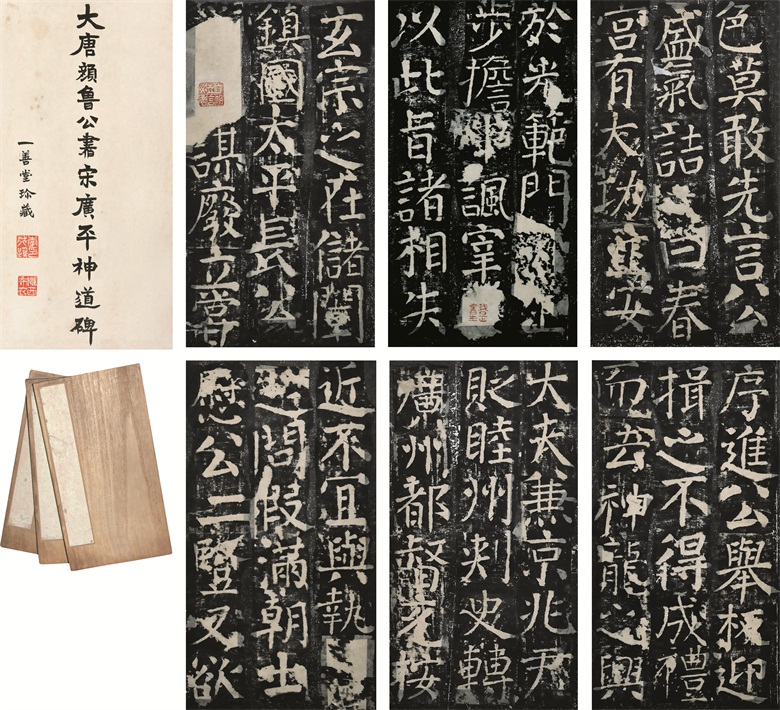 大唐顏魯公書宋廣平神道碑
一善堂珍藏
玄宗之在儲闈
鎮國太平長公
謀廢立尊
於光範門
步擔諷宰
以此旨諸相失
色莫敢先言公
盛氣詰曰春
宮有大功安
近不宜與執
問假滿朝士
公二豎又欲
大夫兼京兆尹
貶睦州刺史轉
廣州都督充按
序進公舉板迎
揖之不得成禮
而去神龍之興